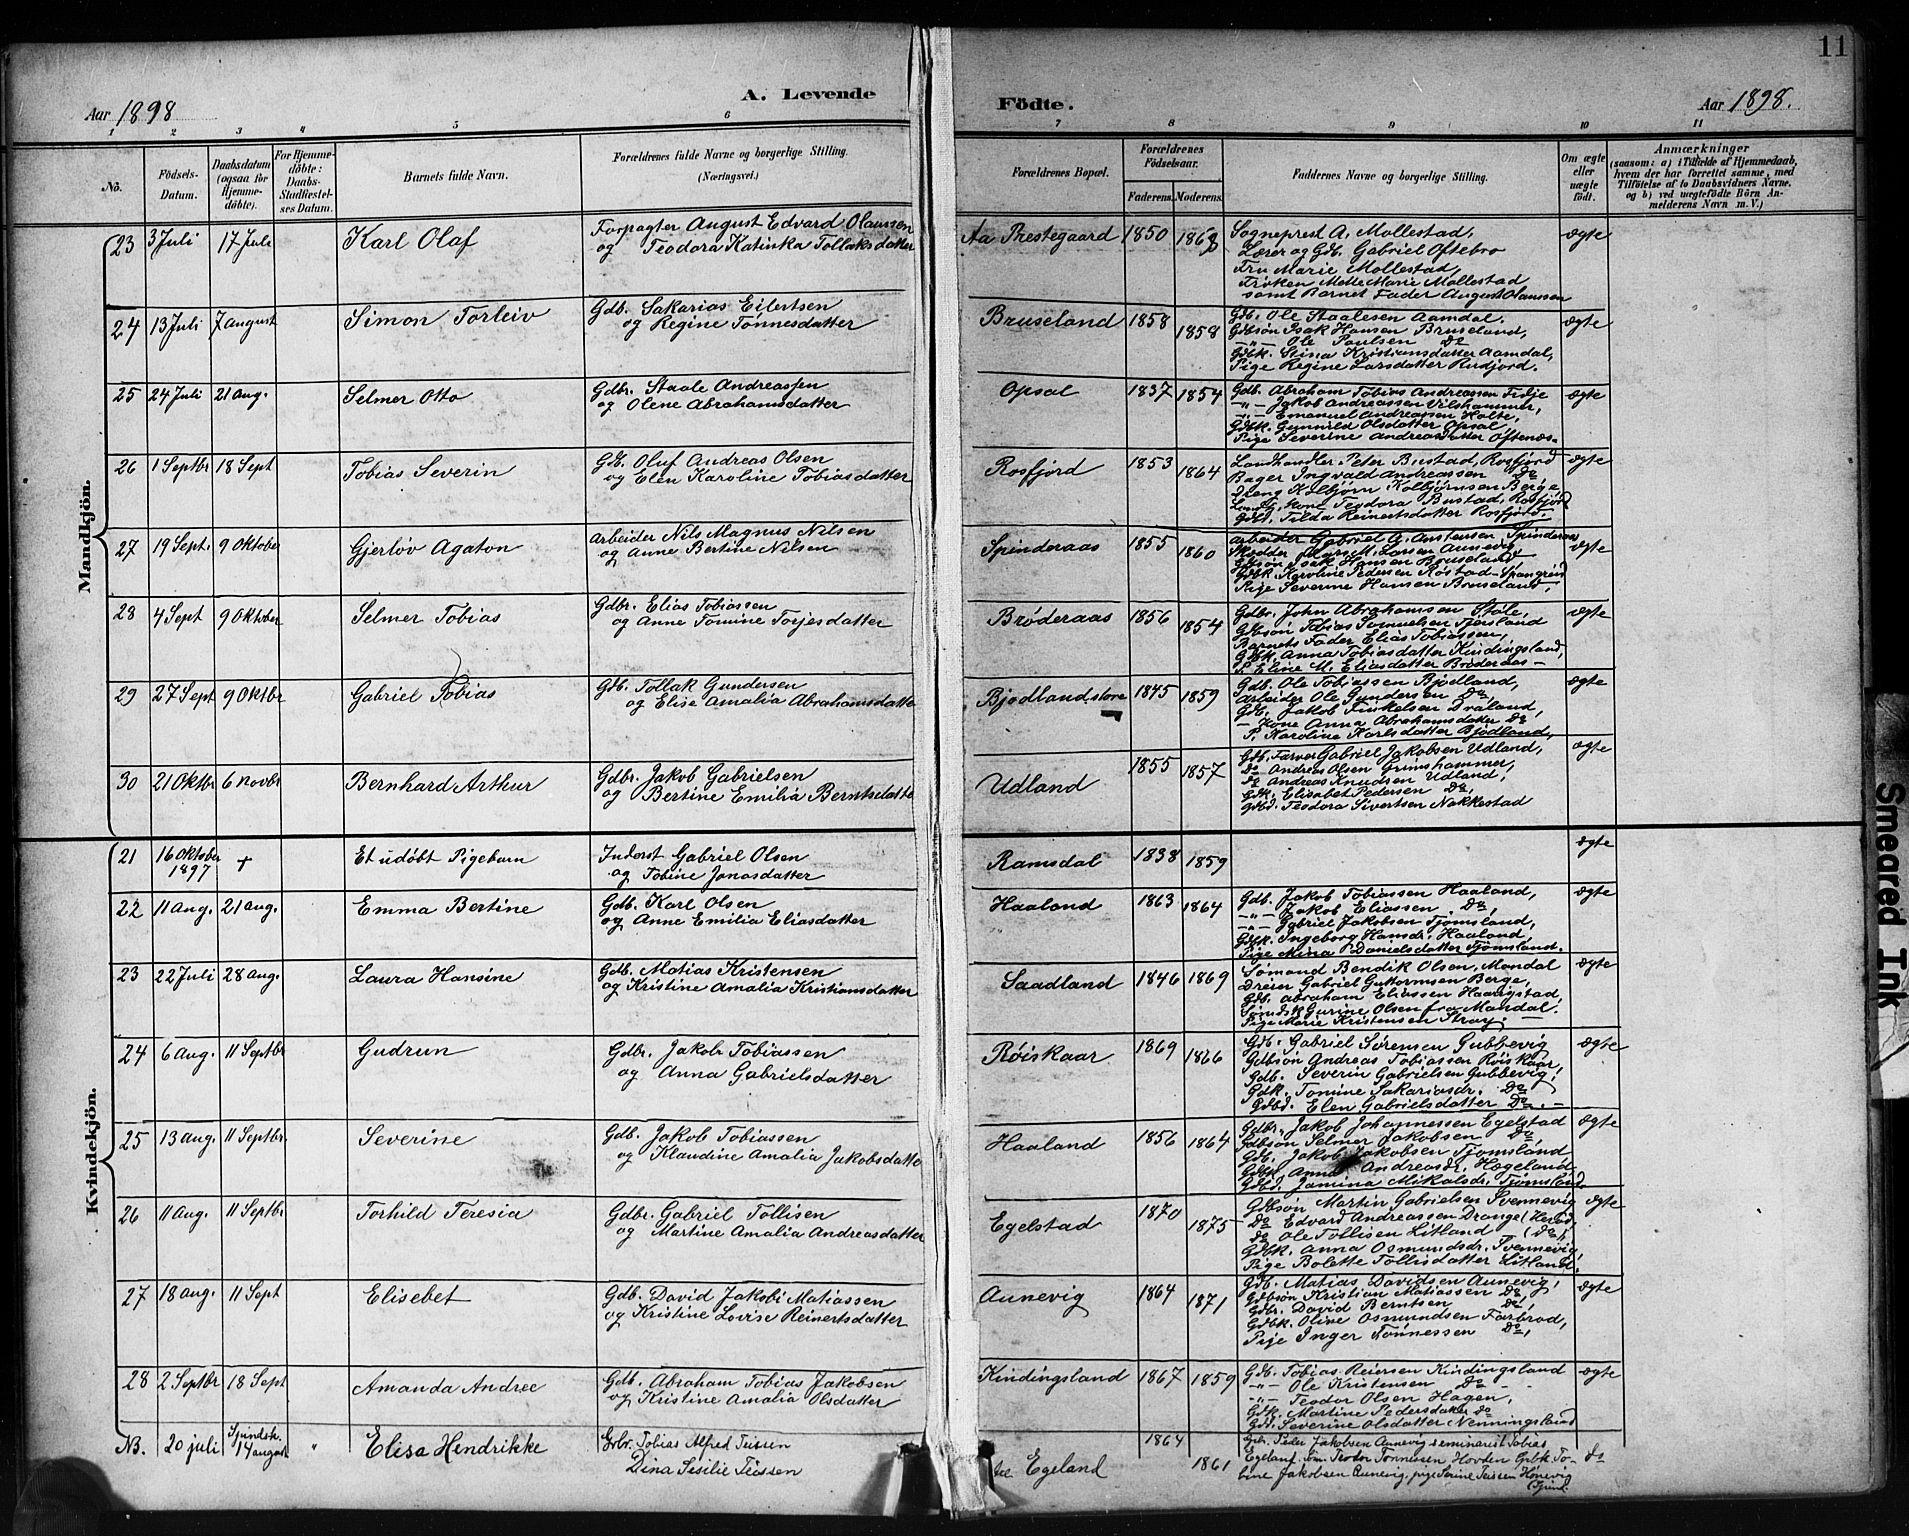 11
Aar 1898
A. Levende
Födte.
Aar 1898.
1 2 3 4 5 6 7 8 9 10 11
No.
Födsels-Datum.
Daabsdatum (ogsaa for Hjemme-döbte).
For Hjemme-döbte: Daabs-Stadfæstel-ses Datum.
Barnets fulde Navn.
Forældrenes fulde Navne og borgerlige Stilling.
(Næringsvei.)
Forældrenes Bopæl.
Forældrenes Födselsaar.
Faderens. Moderens.
Faddernes Navne og borgerlige Stilling.
Om ægte eller uægte födt.
Anmærkninger
(saasom: a) i Tilfælde af Hjemmedaab, hvem der har forrettet samme, med Tilföielse af to Daabsvidners Navne, og b) ved uægtefödte Börn An-melderens Navn m. V.)
Mandkjön.
23 3 Juli 17 Juli Karl Olaf
Forpagter August Edvard Olaussen
og Teodora Katinka Tollaksdatter
Aa Prestegaard 1850 1868
Sogneprest A. Mollestad,
Lærer og Gdb. Gabriel Oftebro
Fru Marie Mollestad,
Frøken Mette Marie Mollestad
samt Barnets Fader August Olaussen
ægte
24 13 Juli 7 august Simon Torleiv
Gdb. Sakarias Eilertsen
og Regine Tønnesdatter
Bruseland 1858 1858
Gdb. Ole Staalesen Aamdal,
Gdbsøn Isak Hansen Bruseland,
-"- Ole Paulsen Do
Gdbk. Stina Kristiansdatter Aamdal,
Pige Regine Larsdatter Rudjord.
ægte
25 24 Juli 21 aug. Selmer Otto
Gdbr. Staale Andreassen
og Olene Abrahamsdatter
Opsal 1837 1854
Gdb. Abraham Tobias Andreassen Fidje
-"- Jakob Andreassen Vilshammer,
-"- Emanuel Andreassen Holte,
Gdbk. Gunnild Olsdatter Opsal,
Pige Severine Andreasdatter Oftenæs.
ægte
26 1 Septbr 18 Sept Tobias Severin
Gdb. Oluf Andreas Olsen
og Elen Karoline Tobiasdatter
Rosfjord 1853 1864
Landhandler Peter Bustad, Rosfjord
Bager Ingvald Andreassen Do
Dreng Kolbjørn Kolbjørnsen Berge
Kone Teodora Bustad, Rosfjord
Tilda Reinertsdatter Rosfjord.
ægte
27 19 Sept. 9 Oktober Gjerløv Agaton
Arbeider Nils Magnus Nilsen
og Anne Bertine Nilsen
Spinderaas 1855 1860
Arbeider Gabriel G. Austensen Spinderaas
M. Larsen Aunevig
Gdbsøn Isak Hansen Bruseland,
Gdbk. Karoline Pedersen Røstad
Pige Severine Hansen Bruseland,
ægte
28 4 Sept 9 Oktober Selmer Tobias
Gdbr. Elias Tobiassen
og Anne Tomine Torjesdatter
Brøderaas 1856 1854
Gdbr. John Abrahamsen Støle,
Gdbsøn Tobias Samuelsen Tjersland
Barnets Fader Elias Tobiassen,
Gdbk Anna Tobiasdatter Kindingsland,
P. Eline M. Eliasdatter Brøderaas -
ægte
29 27 Sept 9 Oktbr Gabriel Tobias
Gdb. Tollak Gundersen
og Elise Amalia Abrahamsdatte
Bjødland store 1845 1859
Gdb. Ole Tobiassen Bjødland,
Arbeider Ole Gundersen Do,
Gdb. Jakob Finkelsen Draland,
- Kone Anna Abrahamsdatter Do
P. Karoline Karlsdatter Bjødland,
ægte
30 21 Oktbr 6 Novbr Bernhard Arthur
Gdbr. Jakob Gabrielsen
og Bertine Emilia Berntsdatte
Udland 1855 1857
Gdb. Farver Gabriel Jakobsen Udland,
Do Andreas Olsen Grimshammer,
Do Andreas Knudsen Udland,
Gdk. Elisabet Pedersen Do,
Gdbd. Teodora Sivertsen Nakkestad
ægte
Kvindekjön.
21 16 Oktober 1897 + Et udøbt Pigebarn
Inderst Gabriel Olsen
og Tobine Jonasdatter
Ramsdal 1838 1859
ægte
22 11 Aug. 21 aug. Emma Bertine
Gdb. Karl Olsen
og Anne Emilia Eliasdatter
Haaland 1863 1864
Gdb. Jakob Tobiassen Haaland,
-"- Jakob Eliassen Do,
-"- Gabriel Jakobsen Tjomsland,
Gdbk. Ingeborg Hansdr. Haaland,
Pige Mina Danielsdatter Tjømsland.
ægte
23 22 Juli 28 aug. Laura Hansine
Gdb. Matias Kristensen
og Kristine Amalia Kristiansdatter
Saadland 1846 1869
Sømand Bendik Olsen, Mandal
Dreier Gabriel Guttormsen Berge,
Gdb. Abraham Eliassen Haaugstad,
Gurine Olsen fra Mandal.
Pige Marie Kristensen Stray.
ægte
24 6 Aug. 11 Septbr Gudrun
Gdbr. Jakob Tobiassen
og Anna Gabrielsdatter
Røiskaar 1869 1866
Gdb. Gabriel Sørensen Gubbevig
Gdbsøn Andreas Tobiassen Røiskaar,
Gdb. Severin Gabrielsen Gubbevig,
Gdk. Tomine Sakariasdr. Do,
Gdbd. Elen Gabrielsdatter Do. -
ægte
25 13 aug. 11 Septbr. Severine
Gdb. Jakob Tobiassen
og Klaudine Amalia Jakobsdatte
Haaland 1856 1864
Gdbr. Jakob Johannessen Egelstad
Gdbsøn Selmer Jakobsen Do,
Gdb. Jakob Jakobsen Tjomsland
Gdbk Anna Andreasdr. Høgeland,
Gdbd. Jamina Mikalsdr. Tjømsland,
ægte
26 11 Aug. 11 Septbr Torhild Teresia
Gdbr. Gabriel Tollisen
og Martine Amalia Andreasdatter
Egelstad 1870 1875
Gdbsøn Martin Gabrielsen Svennevig
Do Edvard Andreassen Drange (Herød,
Do Ole Tollisen Litland (Do),
Gdbk. Anna Osmundsdr. Svennevig,
Pige Bolette Tollisdatter Litland.
ægte
27 18 aug. 11 Sept Elisebet
Gdb. David Jakobi Matiassen
og Kristine Lovise Reinertsdatter
Aunevig 1864 1871
Gdb. Matias Davidsen Aunevig,
Gdbsøn Kristian Matiassen Do,
Gdbr. David Berntsen Do,
Gdbk. Oline Osmundsen Farbrod,
Pige Inger Tønnessen Do,
ægte
28 2 Septbr 18 Sept Amanda Andree
Gdb. Abraham Tobias Jakobsen
og Kristine Amalia Olsdatter
Kindingsland 1867 1859
Gdb. Tobias Reiersen Kindingsland
-"- Ole Kristensen Do -
-"- Teodor Olsen Hagen,
Gdk. Martine Pedersdatter Do
Gdd. Severine Olsdatter Nenningsland
ægte
NB. 20 juli 14 august " Elisa Hendrikke
Grbr. Tobias Alfred Teissen
Dina Sesilie Teissen
Egeland 1864 1861
Gbr. Peder Jakobsen Aunevig seminarist Tobias
Egeland. Teodor Tønnessen Hovden Grbk. To-
bine Jakobsen Aunevig, pige Serine Teissen Hønevig
Do
Smeared Ink